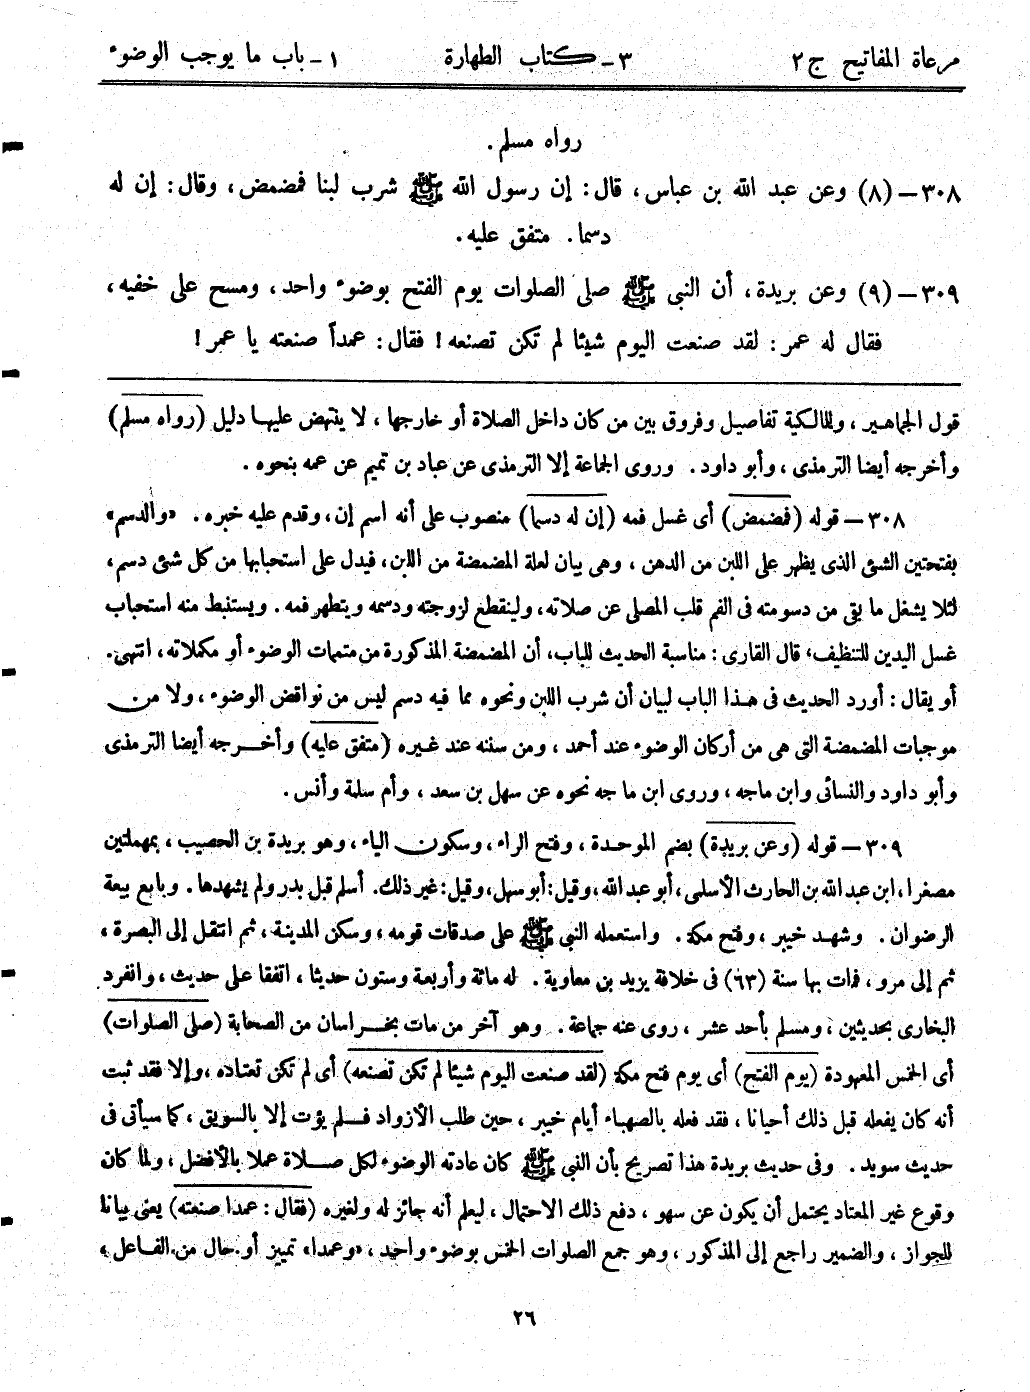 مرعاة المفاتيح ج٢ ٣ــ كتاب الطهارة ١ــ باب ما يوجب الوضوء
رواه مسلم.
٣٠٨ــ (٨) وعن عبد الله بن عباس، قال: إن رسول الله ﷺ شرب لبنا فمضمض، وقال: إن له
دسما. متفق عليه.
٣٠٩ــ (٩) وعن بريدة، أن النبي ﷺ صلى الصلوات يوم الفتح بوضوء واحد، ومسح على خفيه،
فقال له عمر: لقد صنعت اليوم شيئا لم تكن تصنعه! فقال: عمداً صنعته يا عمر!
قول الجماهير، وللمالكية تفاصيل وفروق بين من كان داخل الصلاة أو خارجها، لا ينتهض عليها دليل (رواه مسلم)
وأخرجه أيضا الترمذى، وأبو داود. وروى الجماعة إلا الترمذى عن عباد بن تميم عن عمه بنحوه.
٣٠٨ــ قوله (فمضمض) أى غسل فمه (إن له دسما) منصوب على أنه اسم إن، وقدم عليه خبره. «والدسم»
بفتحتين الشئ الذى يظهر على اللبن من الدهن، وهى بيان لعلة المضمضة من اللبن، فيدل على استحبابها من كل شئ دسم،
لئلا يشغل ما بقى من دسومته فى الفم قلب المصلى عن صلاته، ولينقطع لزوجته ودسمه ويتطهر فمه. ويستنبط منه استحباب
غسل اليدين للتنظيف، قال القارى: مناسبة الحديث للباب، أن المضمضة المذكورة من متممات الوضوء أو مكملاته، انتهى.
أو يقال: أورد الحديث فى هذا الباب لبيان أن شرب اللبن ونحوه مما فيه دسم ليس من نواقض الوضوء، ولا من
موجبات المضمضة التى هى من أركان الوضوء عند أحمد، ومن سننه عند غيره (متفق عليه) وأخرجه أيضا الترمذى
وأبو داود والنسائى وابن ماجه، وروى ابن ماجه نحوه عن سهل بن سعد، وأم سلمة وأنس.
٣٠٩ــ قوله (وعن بريدة) بضم الموحدة، وفتح الراء، وسكون الياء، وهو بريدة بن الحصيب، بمهملتين
مصغرا، ابن عبد الله بن الحارث الأسلمى، أبو عبد الله، وقيل: أبو سهل، وقيل: غير ذلك. أسلم قبل بدر ولم يشهدها. وبايع بيعة
الرضوان. وشهد خيبر، وفتح مكة. واستعمله النبى ﷺ على صدقات قومه، وسكن المدينة، ثم انتقل إلى البصرة،
ثم إلى مرو، فمات بها سنة (٦٣) فى خلافة يزيد بن معاوية. له مائة وأربعة وستون حديثا، اتفقا على حديث، وانفرد
البخارى بحديثين، ومسلم بأحد عشر، روى عنه جماعة. وهو آخر من مات بخراسان من الصحابة (صلى الصلوات)
أى الخمس المعهودة (يوم الفتح) أى يوم فتح مكة (لقد صنعت اليوم شيئا لم تكن تصنعه) أى لم تكن تعتاده، وإلا فقد ثبت
أنه كان يفعله قبل ذلك أحيانا، فقد فعله بالصهباء أيام خيبر، حين طلب الأزواد فلم يؤت إلا بالسويق، كما سيأتى فى
حديث سويد. وفى حديث بريدة هذا تصريح بأن النبى ﷺ كان عادته الوضوء لكل صلاة عملا بالأفضل، ولما كان
وقوع غير المعتاد يحتمل أن يكون عن سهو، دفع ذلك الاحتمال، ليعلم أنه جائز له ولغيره (فقال: عمدا صنعته) يعنى بيانا
للجواز، والضمير راجع إلى المذكور، وهو جمع الصلوات الخمس بوضوء واحد، «وعمدا» تمييز أو حال من الفاعل،
٢٦